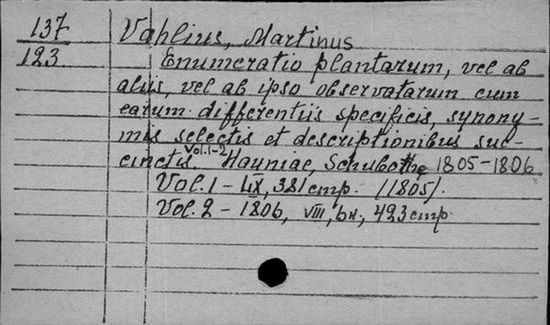 137 Vahlius, Martinus
123 Enumeratio plantarum, vel ab
aliis, vel ab ipso observatarum cum
earum differentiis specificis, synony-
mis selectis et descriptionibus suc-
cinctis. Vol. 1-2 Hauniae, Schubothe 1805-1806
Vol. 1 - LIX, 381 стр. (1805).
Vol. 2 - 1806, VIII, 6н., 423 стр.